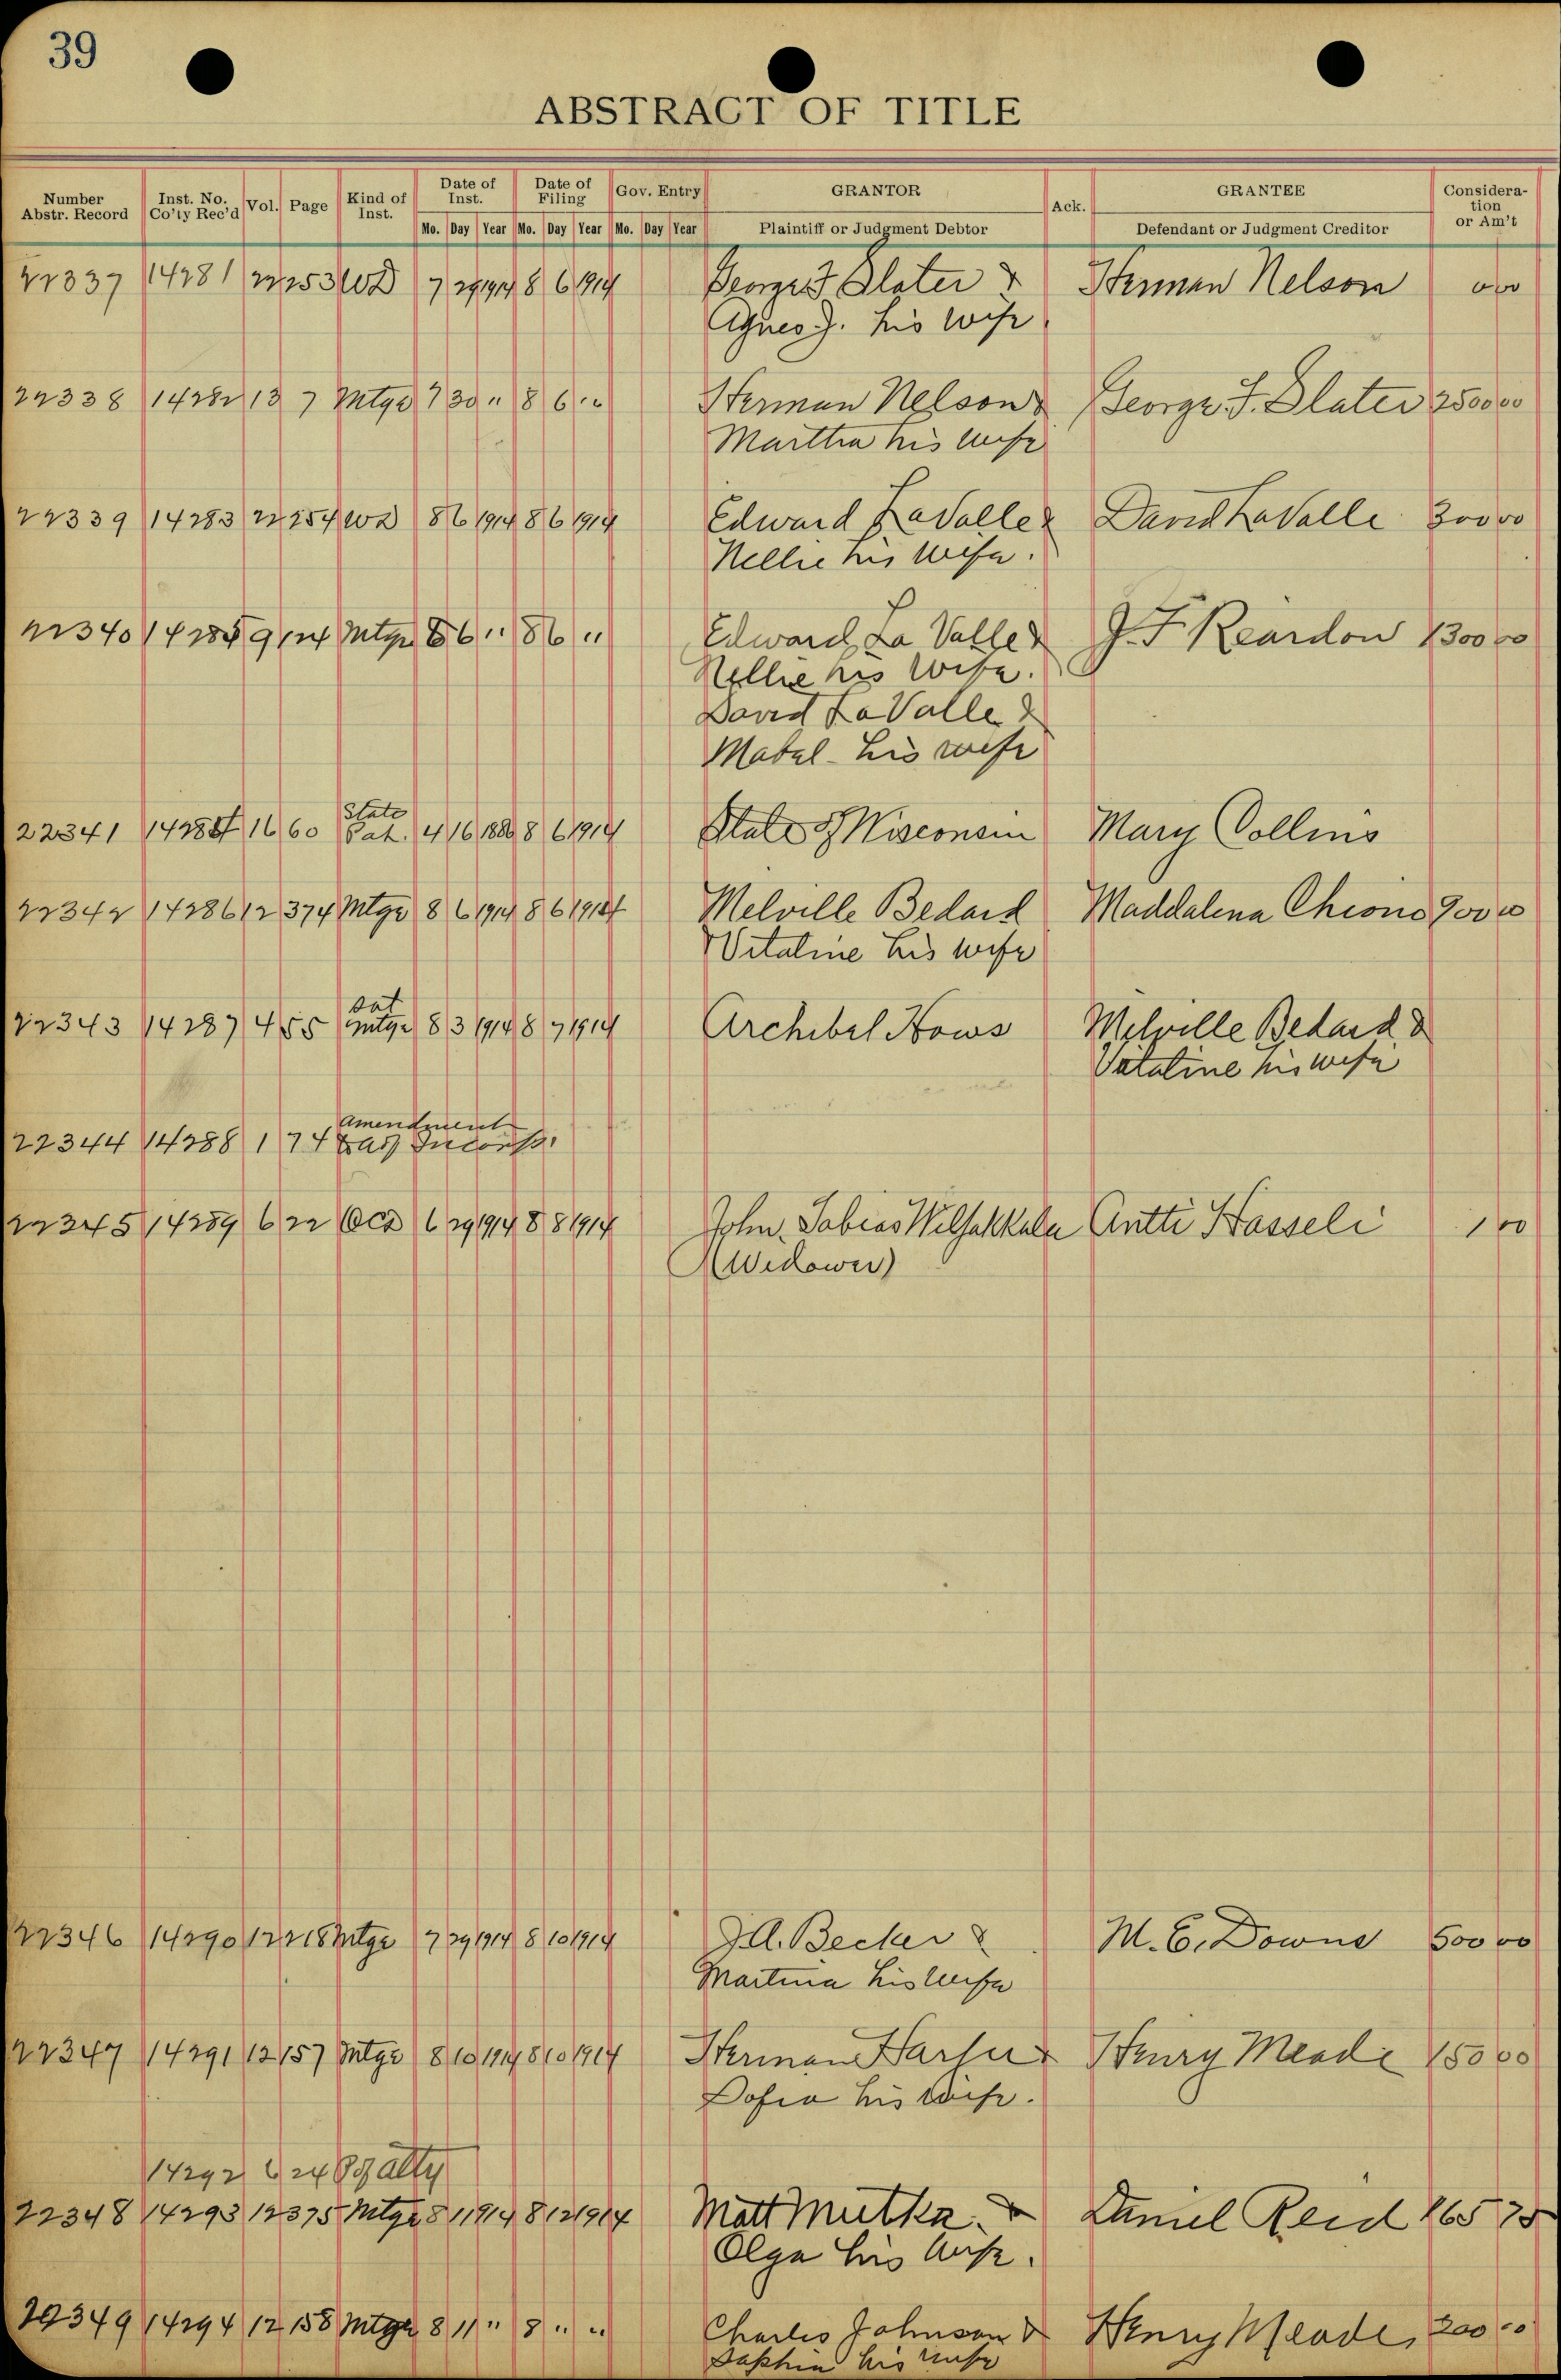 39
ABSTRACT OF TITLE
Number Abstr. Record Inst. No. Co'ty Rec'd Vol. Page Kind of Inst. Date of Inst. Date of Filing Gov. Entry GRANTOR Ack. GRANTEE Consideration or Am't
Mo. Day Year Mo. Day Year Mo. Day Year Plaintiff or Judgment Debtor Defendant or Judgment Creditor
22337 14281 22 253 WD 7 29 1914 8 6 1914 George F. Slater & Herman Nelson
Agnes J. his wife
22338 14282 13 7 Mtge 7 30 " 8 6 " Herman Nelson & George F. Slater 2500 00
Martha his wife
22339 14283 22 254 WD 8 6 1914 8 6 1914 Edward LaValle & David LaValle 300 00
Nellie his wife.
22340 14284 9 124 Mtge 8 6 " 8 6 " Edward La Valle & J. F Reardon 1300 00
Nellie his wife.
David LaValle &
Mabel - his wife
State
22341 14285 16 60 Pat. 4 16 1886 8 6 1914 State of Wisconsin Mary Collins
22342 14286 12 374 Mtge 8 6 1914 8 6 1914 Melville Bedard Maddalena Chiono 900 00
& Vitaline his wife
Sat
22343 14287 4 55 mtge 8 3 1914 8 7 1914 Archibel Hows Melville Bedard &
Vitaline his wife
Amendment
22344 14288 1 74 Incorp.
22345 14289 6 22 QCD 6 29 1914 8 8 1914 John Tobias Antti Hasseli 1 00
(Widower)
22346 14290 12 218 Mtge 7 29 1914 8 10 1914 J. A. Becker & M. E. Downs 500 00
Martina his wife
22347 14291 12 157 Mtge 8 10 1914 8 10 1914 Herman & Henry Meade 150 00
Sofia his wife.
14292 6 24 P of Atty
22348 14293 12 375 Mtge 8 11 1914 8 12 1914 Matt Mutka & Daniel Reid 165 75
Olga his wife.
22349 14294 12 158 Mtge 8 11 " 8 " " Charles Johnson & Henry Meade, 200 00
his wife